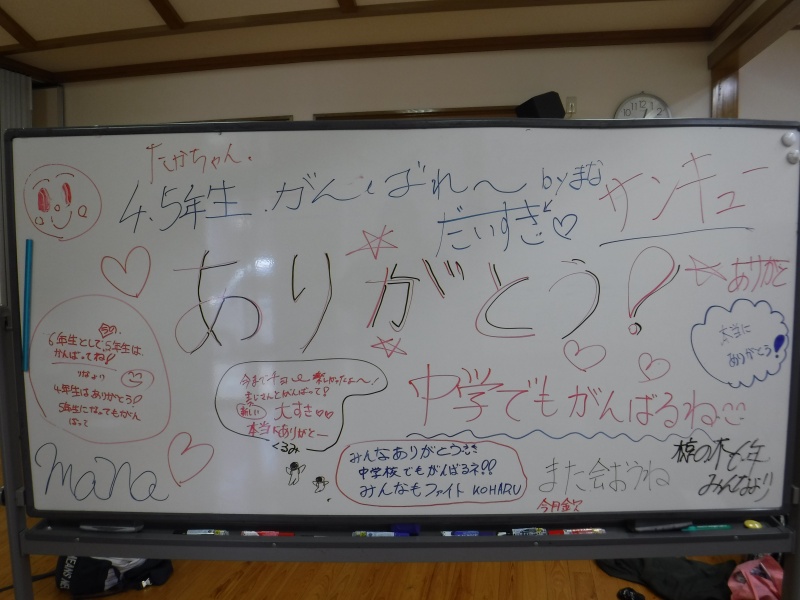 たかちゃん.
4.5年生.がんばれ〜 byまな
だいすき♡
サンキュー
ありがとう!
☆ありがと
本当に
ありがとう!
今の.
6年生として.5年生は.
がんばってね!
りなより
4年生はありがとう!
5年生になってもがん
ばって
今までチョー楽しかったよ〜!
新しい
大すき♡♡
本当にありがとー
くるみ
中学でもがんばるね
mana
みんなありがとう
中学校でもがんばるネ!!
みんなもファイト KOHARU
また会おうね
椋の木6年
みんなより